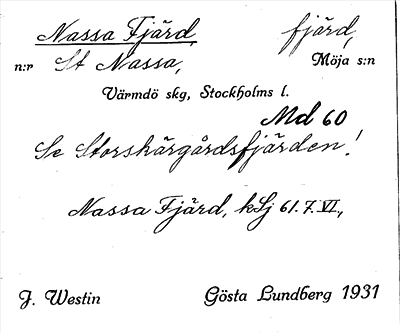 Nassa Fjärd, fjärd,
n:r St Nassa, Möja s:n
Värmdö skg, Stockholms l.
Md 60
Se Storskärgårdsfjärden!
Nassa Fjärd, kSj 61.7.VI,
J. Westin Gösta Lundberg 1931